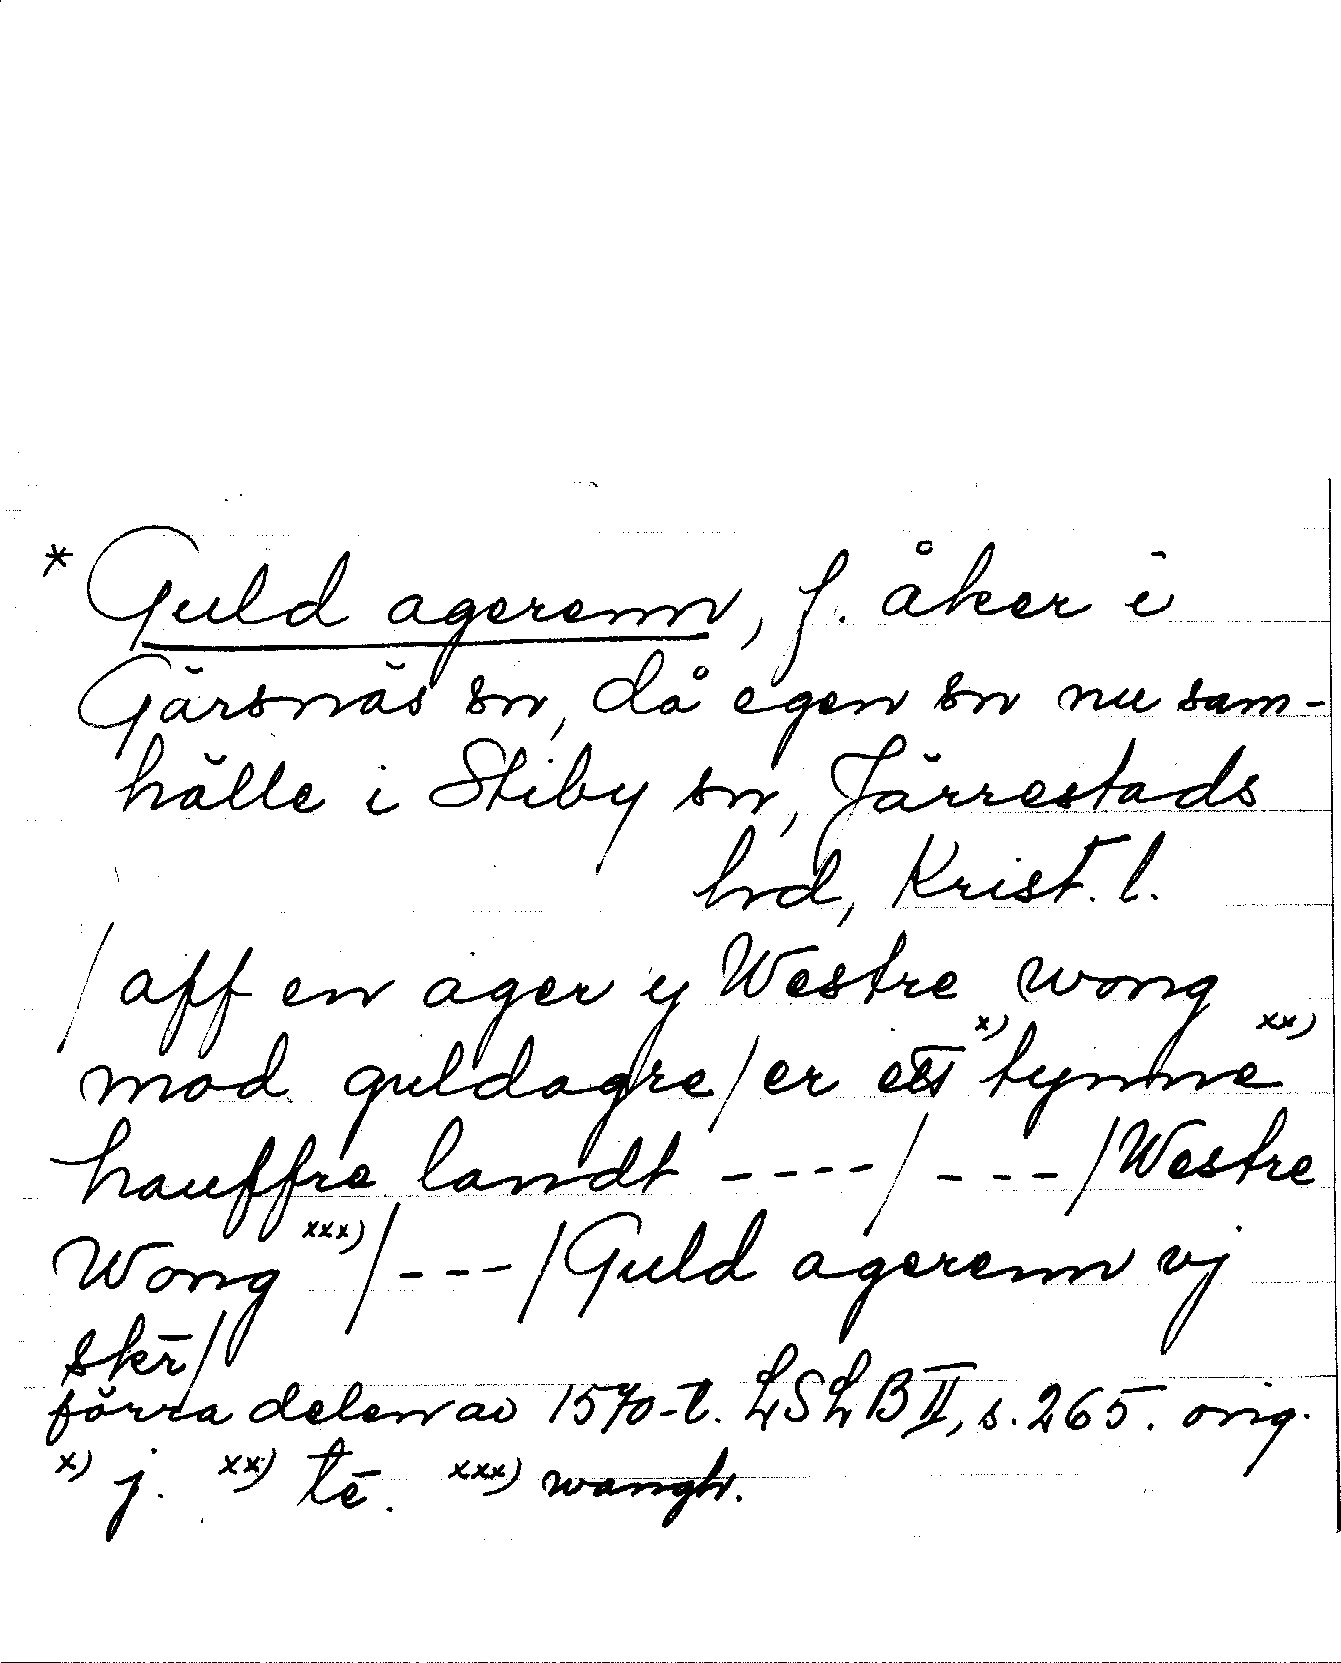 * Guld agerenn, f. åker i
Gärsnäs sn, då egen sn nu sam-
hälle i Stiby sn, Järrestads
hrd, Krist. l.
/ aff en ager y Westre wong
mod guldagre / er ett x) tynne xx)
hauffre landt ---- / --- / Westre
Wong xxx) / --- / Guld agerenn vj
skr̄ /
förra delen av 1570-t. LSLB II, s. 265. orig.
x) j. xx) tē. xxx) wangh.